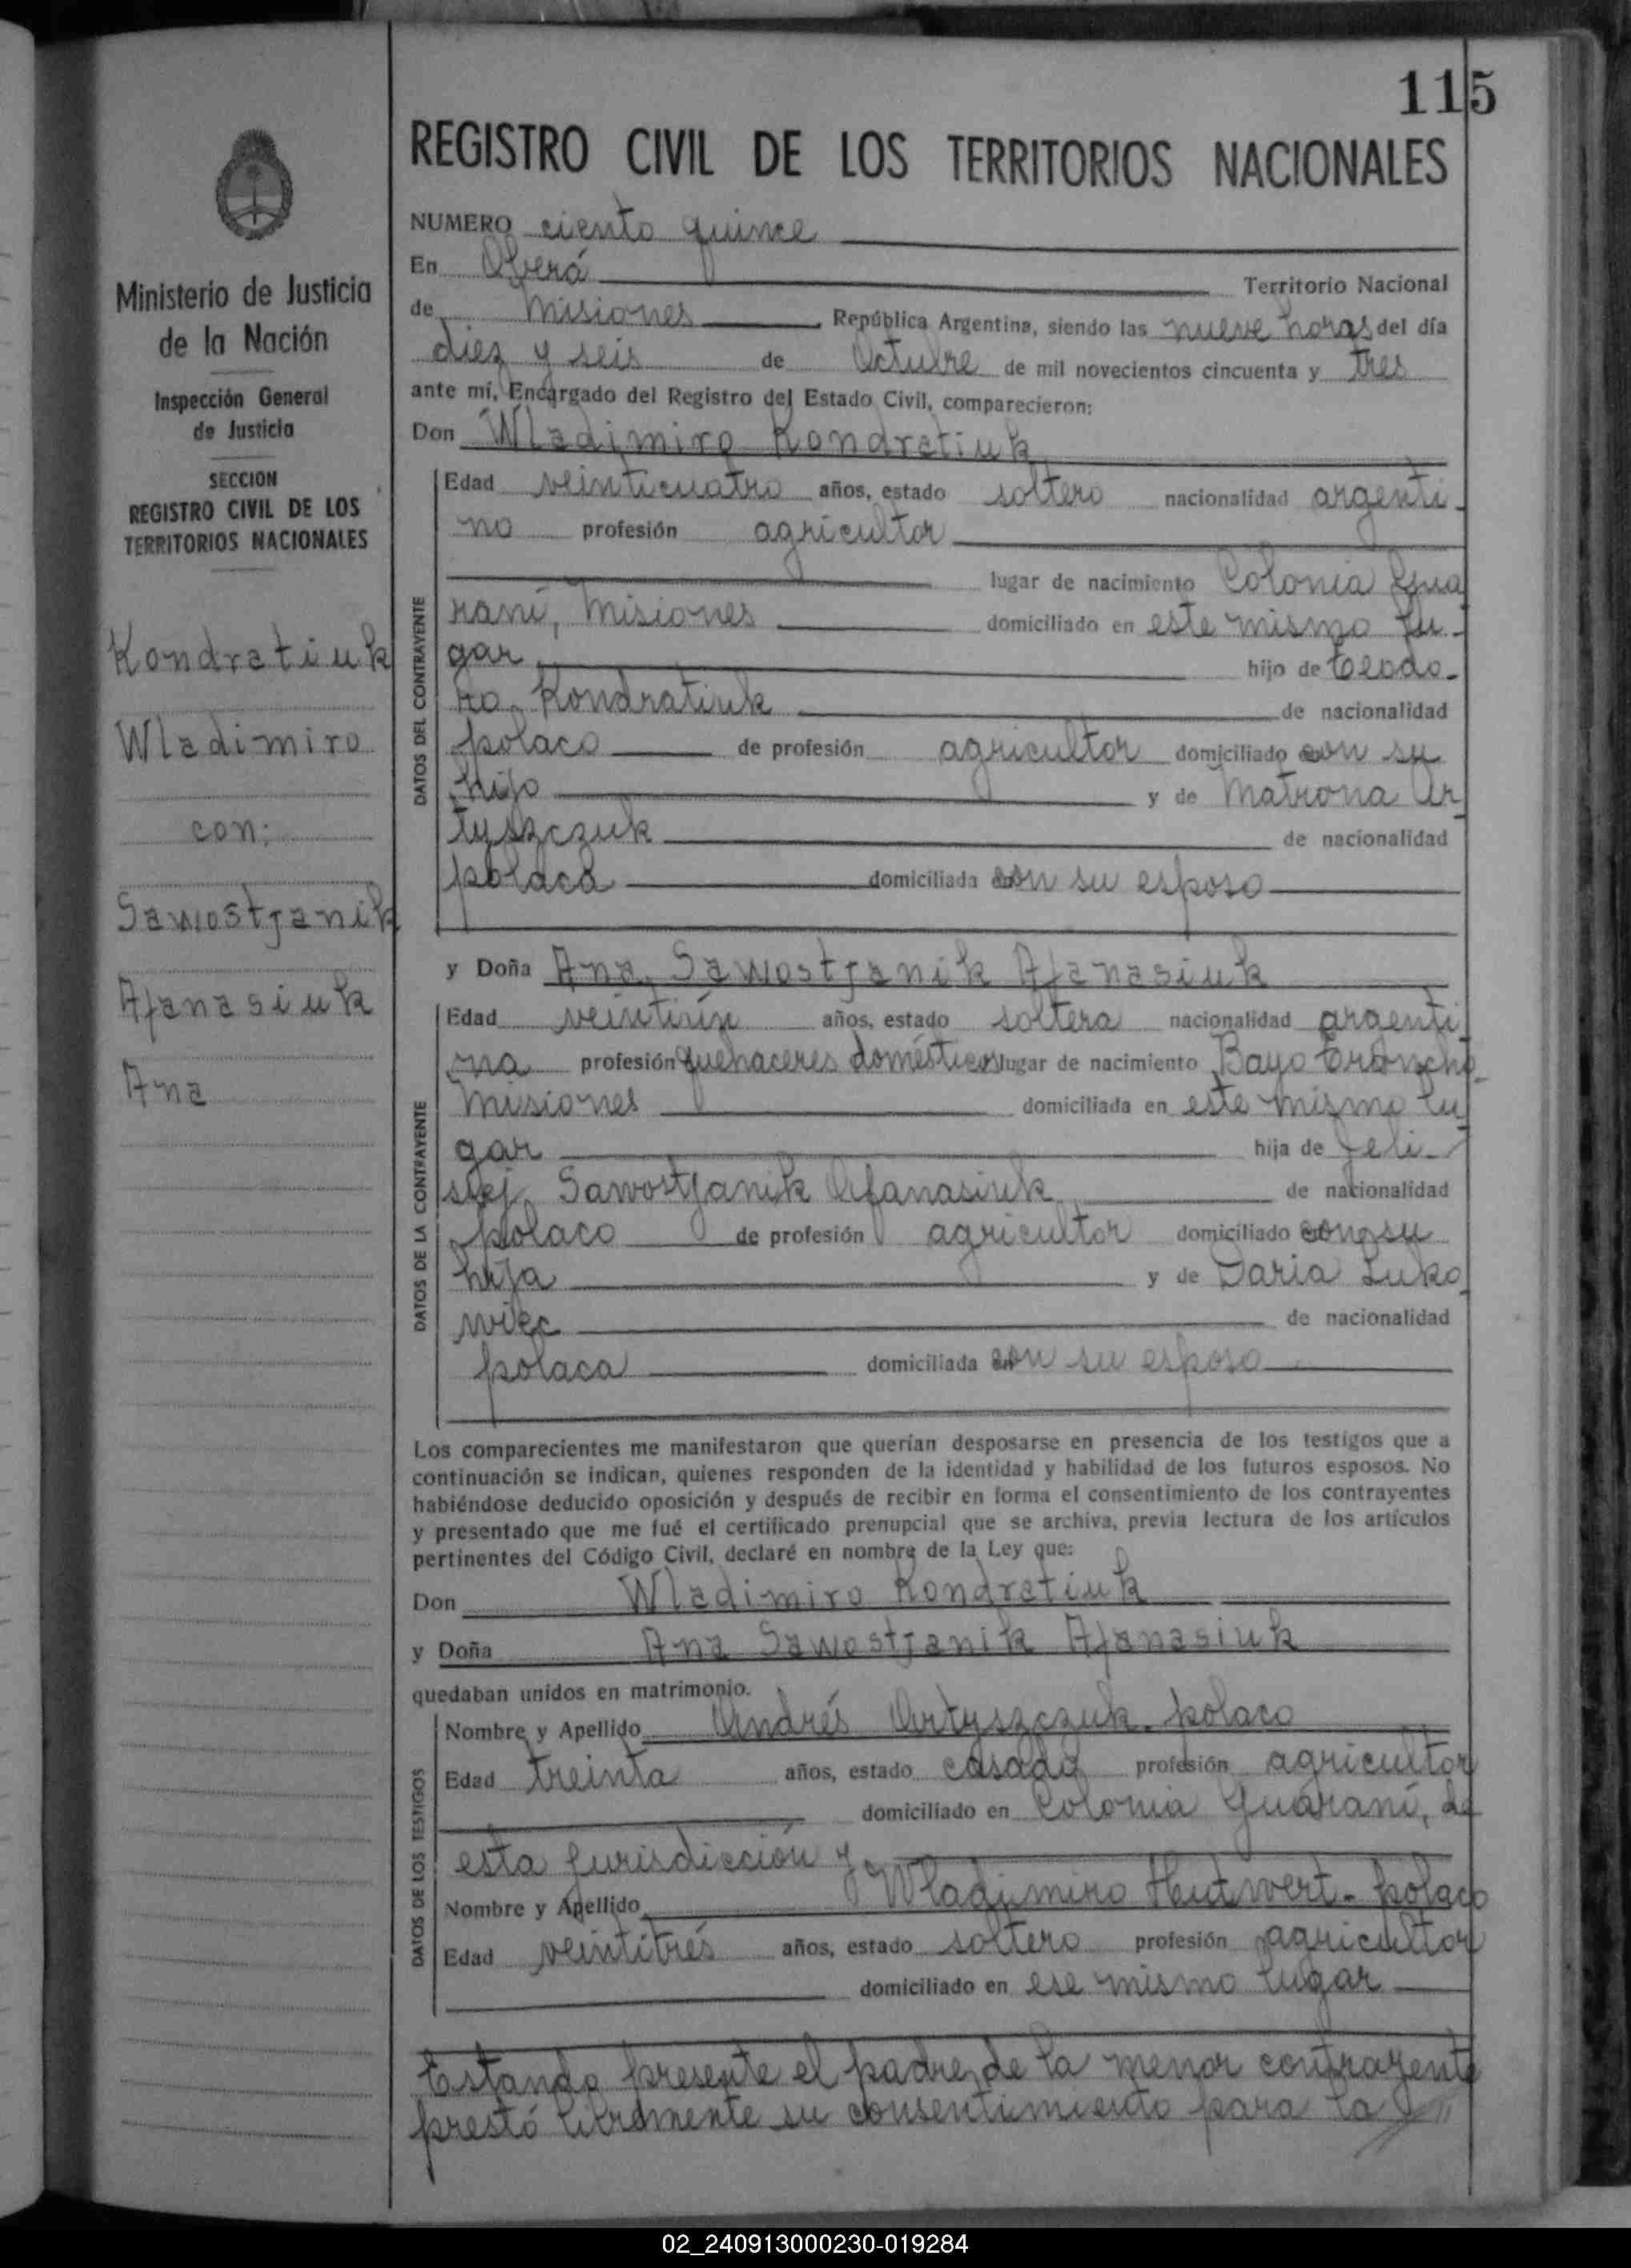 115
REGISTRO CIVIL DE LOS TERRITORIOS NACIONALES
Ministerio de Justicia
de la Nación
Inspección General
de Justicia
SECCION
REGISTRO CIVIL DE LOS
TERRITORIOS NACIONALES
Kondratiuk
Wladimiro
con:
Sawostjanik
Afanasiuk
Ana
NUMERO ciento quince
En Oberá Territorio Nacional
de Misiones República Argentina, siendo las nueve horas del día
diez y seis de Octubre de mil novecientos cincuenta y tres
ante mí, Encargado del Registro del Estado Civil, comparecieron:
Don Wladimiro Kondratiuk
DATOS DEL CONTRAYENTE
Edad veinticuatro años, estado soltero nacionalidad argenti-
no profesión agricultor
lugar de nacimiento Colonia Gua
raní, Misiones domiciliado en este mismo lu-
gar hijo de Teodo-
ro Kondratiuk de nacionalidad
polaco de profesión agricultor domiciliado con su
hijo y de Matrona Ar
tyszczuk de nacionalidad
polaca domiciliada con su esposo
y Doña Ana Sawostjanik Afanasiuk
DATOS DE LA CONTRAYENTE
Edad veintiún años, estado soltera nacionalidad argenti
na profesión quehaceres domésticos lugar de nacimiento Bayo Troncho-
Misiones domiciliada en este mismo lu
gar hija de Jeli-
siej Sawostjanik Afanasiuk de nacionalidad
polaco de profesión agricultor domiciliado con su
hija y de Daria Luko
wiec de nacionalidad
polaca domiciliada con su esposo
Los comparecientes me manifestaron que querían desposarse en presencia de los testigos que a
continuación se indican, quienes responden de la identidad y habilidad de los futuros esposos. No
habiéndose deducido oposición y después de recibir en forma el consentimiento de los contrayentes
y presentado que me fué el certificado prenupcial que se archiva, previa lectura de los artículos
pertinentes del Código Civil, declaré en nombre de la Ley que:
Don Wladimiro Kondratiuk
y Doña Ana Sawostjanik Afanasiuk
quedaban unidos en matrimonio.
DATOS DE LOS TESTIGOS
Nombre y Apellido Andrés Artyszczuk- polaco
Edad treinta años, estado casado profesión agricultor
domiciliado en Colonia Guaraní, de
esta jurisdicción y
Nombre y Apellido Wladimiro - polaco
Edad veintitrés años, estado soltero profesión agricultor
domiciliado en ese mismo lugar
Estando presente el padre de la menor contrayente
prestó libremente su consentimiento para la
02_240913000230-019284